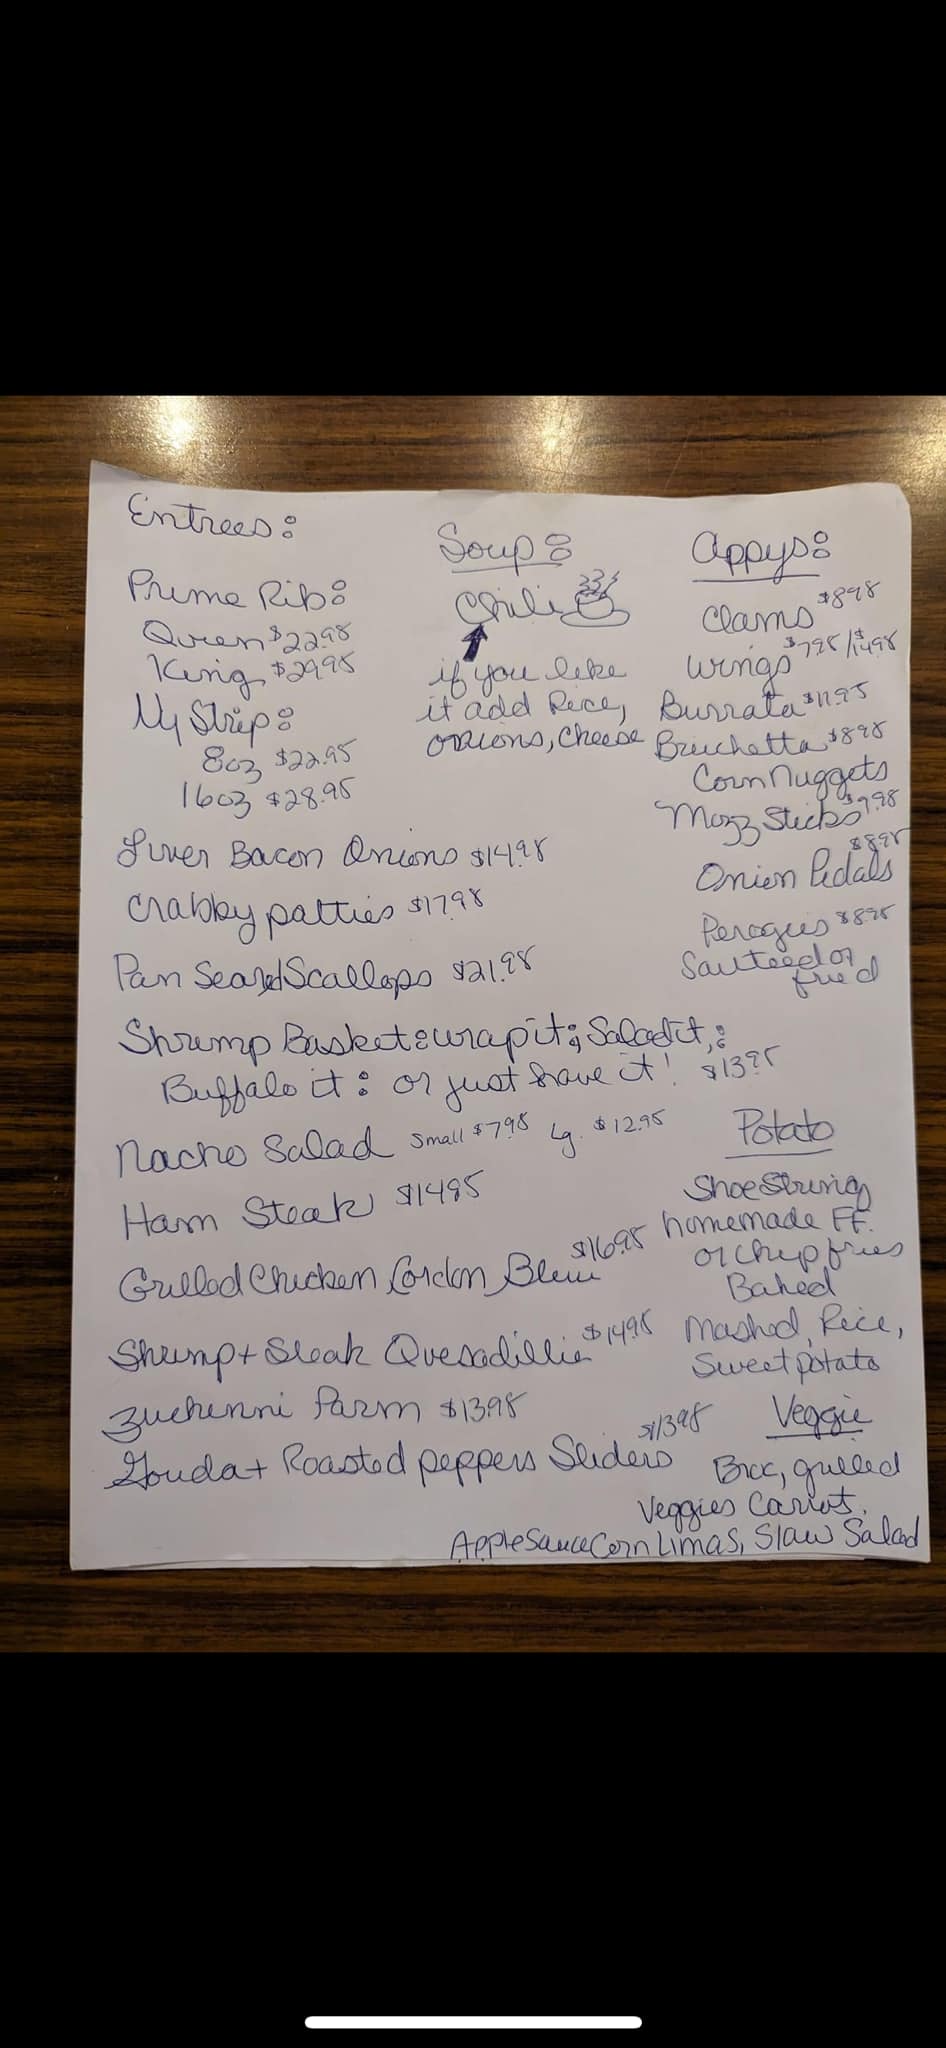 Entrees:
Prime Rib:
Queen $22.95
King $29.95
Ny Strip:
8oz $22.95
16oz $28.95
Liver Bacon Onions $14.95
Crabby patties $17.95
Pan Seared Scallops $21.95
Shrimp Basket: wrap it; Salad it,:
Buffalo it: or just have it! $13.95
Nacho Salad Small $7.95 Lg. $12.95
Ham Steak $14.95
Grilled Chicken Cordon Bleu $16.95
Shrimp + Steak Quesadillia $14.95
Zuchinni Parm $13.95
Gouda + Roasted peppers Sliders $13.95
Soup:
Chili
if you like
it add Rice,
onions, Cheese
Appys:
Clams $8.95
Wings $7.95/$14.95
Burrata $11.95
Bruchetta $8.95
Corn Nuggets
Mozz Sticks $9.95
Onion Pedals $8.95
Perogies $8.95
Sauteed or
fried
Potato
Shoe String
homemade FF.
or Chip fries
Baked
Mashed, Rice,
Sweet potato
Veggie
Broc, grilled
Veggies Carrot.
Apple Sauce Corn Limas, Slaw Salad